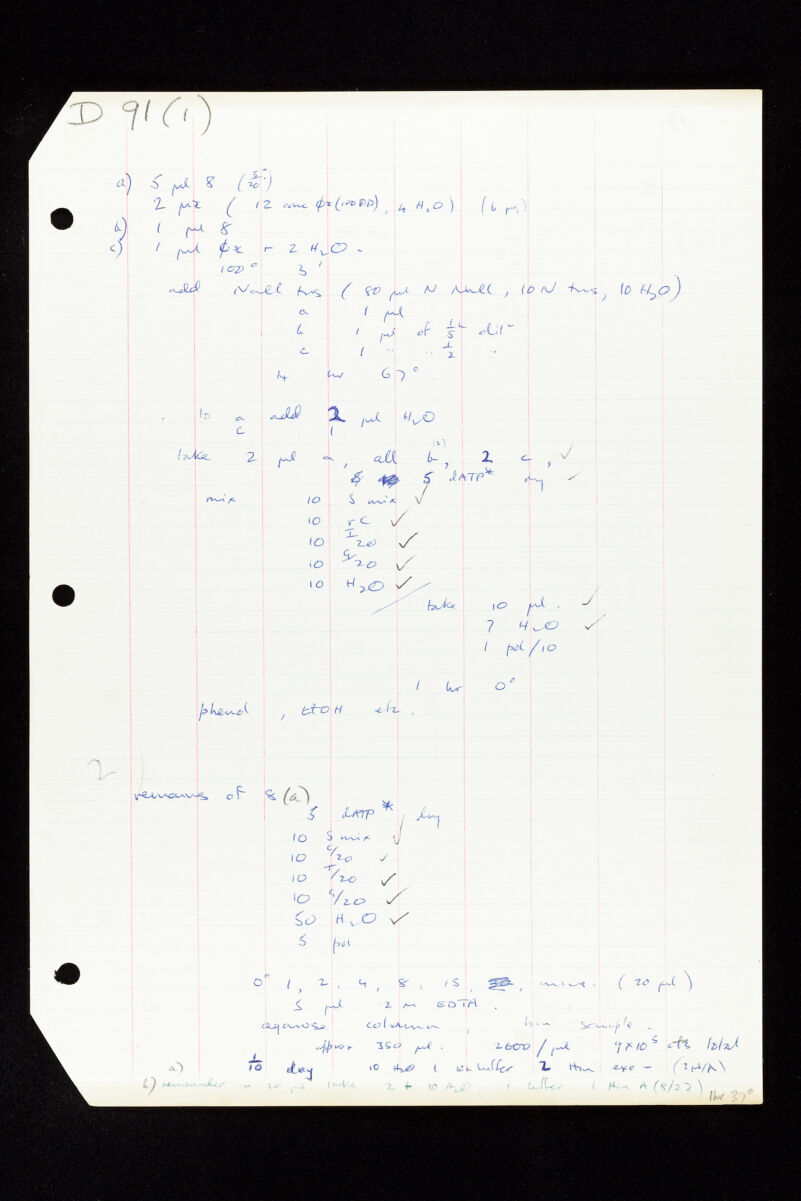 D 91 (1)
a) 5 µl 8
2 µl ( 12 conc φx (100 OD), 4 H2O ) (6 µl)
b) 1 µl 8
c) 1 µl φx + 2 H2O
100° 3'
add NaCl tris ( 80 µl N NaCl, 10 N tris, 10 H2O )
a 1 µl
b 1 µl of 1/5 dil
c 1 " " 1/2 "
hr 67°
to a add 2 µl H2O
c 1
take 2 µl a, all b, 2 c, ✓
5 dATP* dry ✓
mix 10 S mix ✓
10 C ✓
10 T/20 ✓
10 G/20 ✓
10 H2O ✓
take 10 µl. ✓
7 H2O ✓
1 pol/10
1 hr 0°
phenol, EtOH etc.
2
remains of 8 (a)
5 dATP* dry
10 S mix ✓
10 C/20 ✓
10 T/20 ✓
10 G/20 ✓
50 H2O ✓
5 pol
0° 1, 2, 4, 8, 15, mins. (20 µl)
5 µl .2 M EDTA.
agarose column, sample.
approx 350 µl. 2600/µl 9×10^5 cts total
a) 1/10 dry 10 H2O 1 10x buffer 2 Hin exo
b) remainder in 20 µl take 2 + 10 H2O. 1 buffer. 1 Hin A (8/22) 1hr 37°